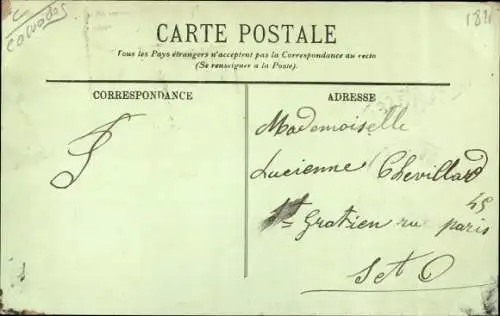 calvados
181
CARTE POSTALE
Tous les Pays étrangers n'acceptent pas la Correspondance au recto
(Se renseigner à la Poste).
CORRESPONDANCE
ADRESSE
Mademoiselle
Lucienne Chevillard
St Gratien ru paris 45
Set O